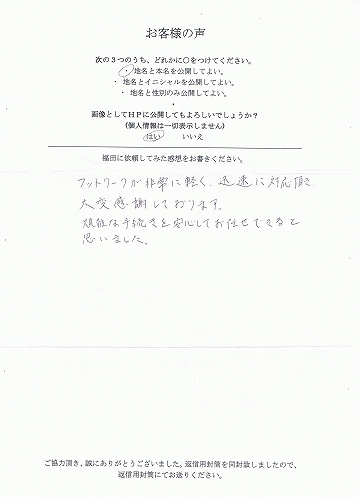 お客様の声
次の3つのうち、どれかに○をつけてください。
・ 地名と本名を公開してよい。
・ 地名とイニシャルを公開してよい。
・ 地名と性別のみ公開してよい。
・
画像としてHPに公開してもよろしいでしょうか?
(個人情報は一切表示しません)
はい いいえ
福田に依頼してみた感想をお書きください。
フットワークが非常に軽く、迅速に対応頂き
大変感謝しております。
煩雑な手続きを安心してお任せできると
思いました。
ご協力頂き、誠にありがとうございました。返信用封筒を同封致しましたので、
返信用封筒にてお送りください。